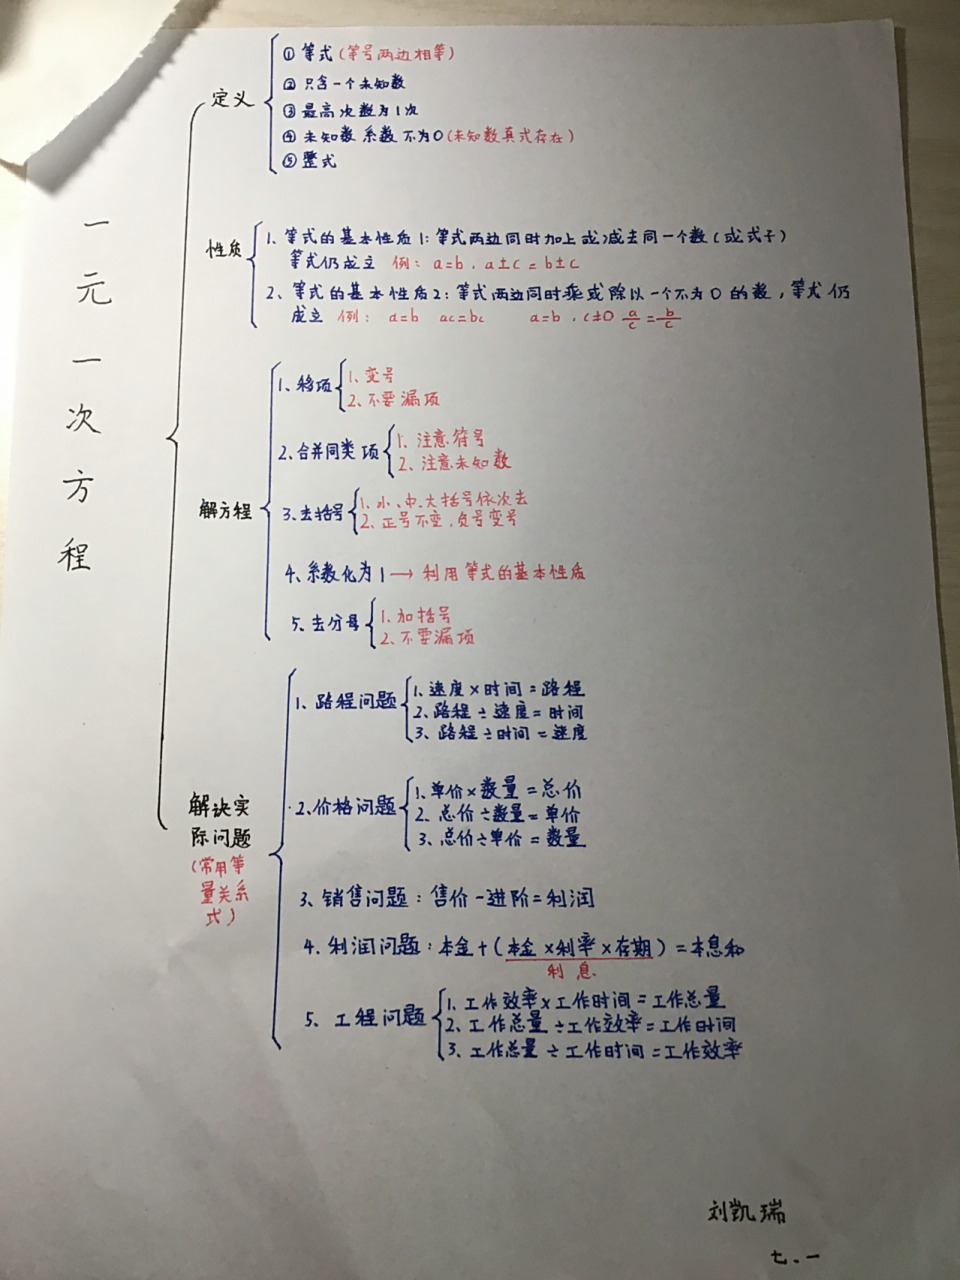 一元一次方程
定义
① 等式(等号两边相等)
② 只含一个未知数
③ 最高次数为1次
④ 未知数系数不为0(未知数真式存在)
⑤ 整式
性质
1、等式的基本性质1:等式两边同时加上或减去同一个数(或式子)
等式仍成立 例: a=b , a±c = b±c
2、等式的基本性质2:等式两边同时乘或除以一个不为0的数,等式仍
成立 例: a=b ac=bc a=b , c≠0 a/c = b/c
解方程
1、移项
1、变号
2、不要漏项
2、合并同类项
1、注意符号
2、注意未知数
3、去括号
1、小、中、大括号依次去
2、正号不变,负号变号
4、系数化为1→利用等式的基本性质
5、去分母
1、加括号
2、不要漏项
解决实
际问题
(常用等
量关系
式)
1、路程问题
1、速度×时间=路程
2、路程÷速度=时间
3、路程÷时间=速度
2、价格问题
1、单价×数量=总价
2、总价÷数量=单价
3、总价÷单价=数量
3、销售问题:售价-进阶=利润
4、利润问题:本金+(本金×利率×存期)=本息和
利息
5、工程问题
1、工作效率×工作时间=工作总量
2、工作总量÷工作效率=工作时间
3、工作总量÷工作时间=工作效率
刘凯瑞
七、一